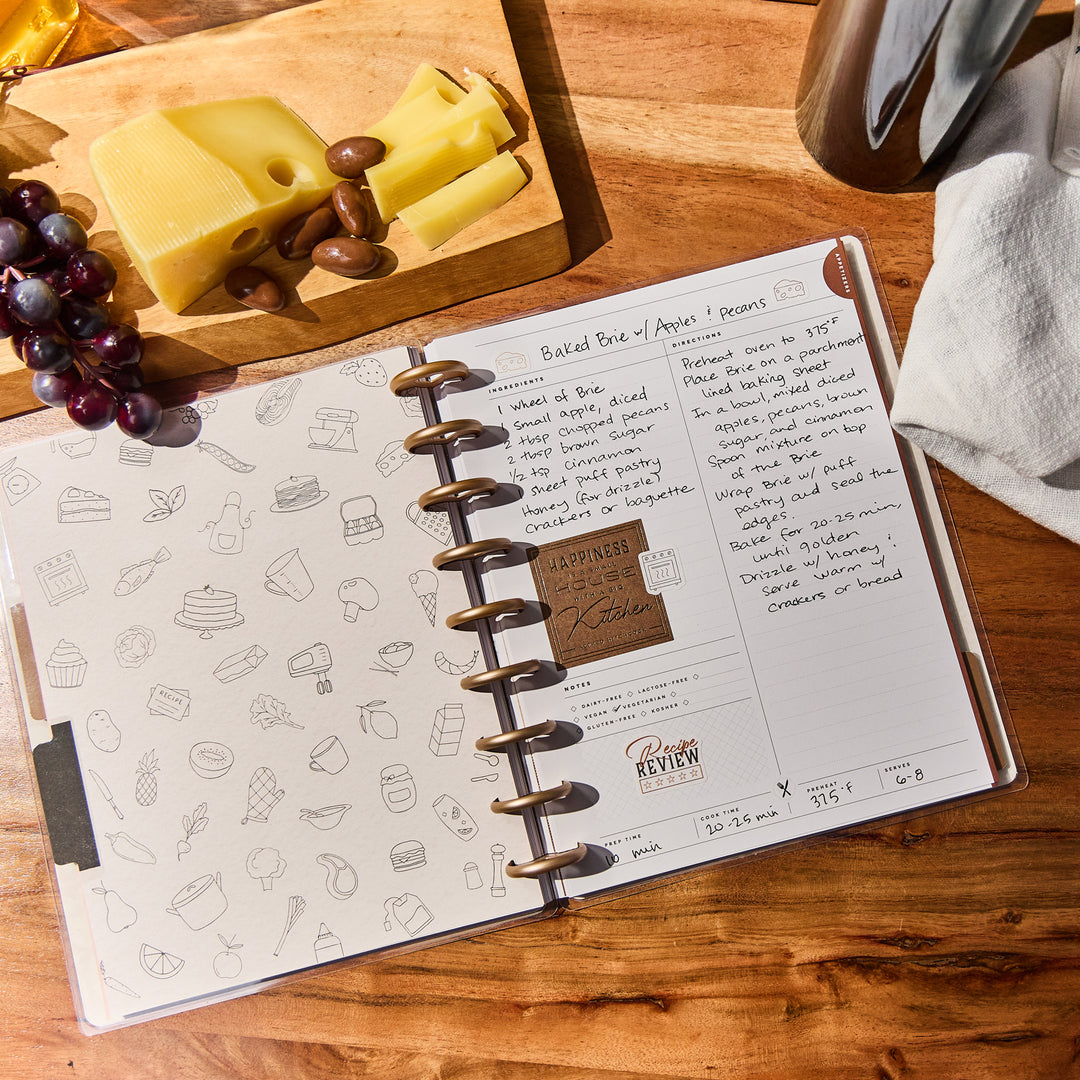 RECIPE
APPETIZERS
Baked Brie w/ Apples & pecans
INGREDIENTS
1 wheel of Brie
1 small apple, diced
2 tbsp chopped pecans
2 tbsp brown sugar
1/2 tsp cinnamon
1 sheet puff pastry
Honey (for drizzle)
Crackers or baguette
HAPPINESS
HOUSE
WITH A BIG
Kitchen
DIRECTIONS
Preheat oven to 375°F
Place Brie on a parchment
lined baking sheet
In a bowl, mixed diced
apples, pecans, brown
sugar, and cinnamon
Spoon mixture on top
of the Brie
Wrap Brie w/ puff
pastry and seal the
edges.
Bake for 20-25 min,
until golden
Drizzle w/ honey &
serve warm w/
crackers or bread
NOTES
DAIRY-FREE LACTOSE-FREE
VEGAN VEGETARIAN
GLUTEN-FREE KOSHER
Recipe
REVIEW
PREP TIME
10 min
COOK TIME
20-25 min
PREHEAT
375°F
SERVES
6-8